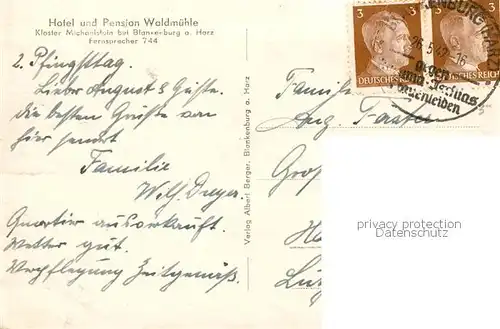 Hotel und Pension Waldmühle
Kloster Michaelstein bei Blankenburg a. Harz
Fernsprecher 744
2. Pfingsttag.
Lieber August & Guste.
die besten Grüße von
hier sendet
Familie
Wilh. Dreyer.
Quartier ausverkauft.
Wetter gut.
Verpflegung Zeitgemäß.
Verlag Albert Berger, Blankenburg a. Harz
3 3
DEUTSCHES REICH DEUTSCHES REICH
26.5.42-16
Familie
Aug.
privacy protection
Datenschutz